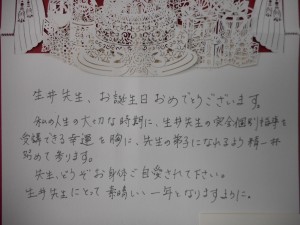 生井先生、お誕生日おめでとうございます。
私の人生の大切な時期に、生井先生の完全個別指導を
受講できる幸運を胸に、先生の弟子になれるよう精一杯
努めて参ります。
先生、どうぞお身体ご自愛されて下さい。
生井先生にとって素晴しい一年となりますように。